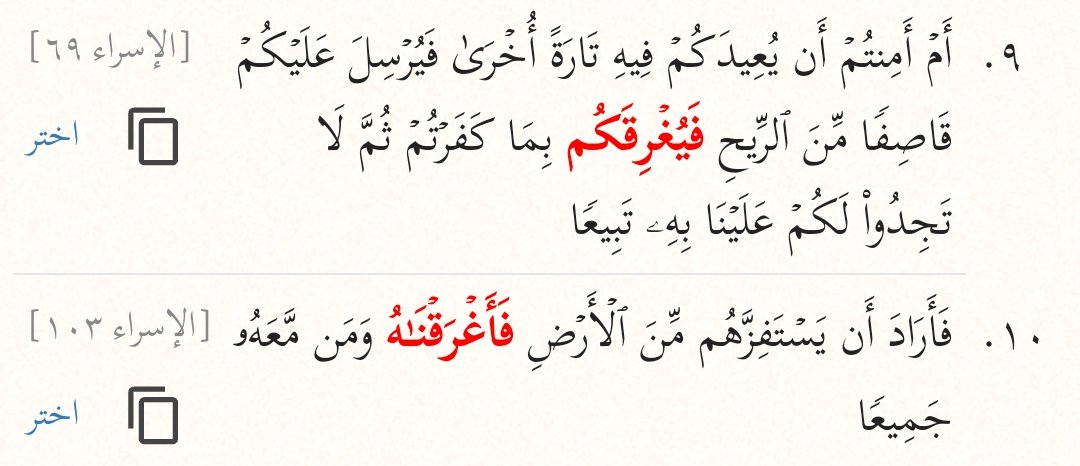 ٩. أَمۡ أَمِنتُمۡ أَن يُعِيدَكُمۡ فِيهِ تَارَةً أُخۡرَىٰ فَيُرۡسِلَ عَلَيۡكُمۡ [الإسراء ٦٩]
قَاصِفٗا مِّنَ ٱلرِّيحِ فَيُغۡرِقَكُم بِمَا كَفَرۡتُمۡ ثُمَّ لَا اختر
تَجِدُواْ لَكُمۡ عَلَيۡنَا بِهِۦ تَبِيعٗا
١٠. فَأَرَادَ أَن يَسۡتَفِزَّهُم مِّنَ ٱلۡأَرۡضِ فَأَغۡرَقۡنَٰهُ وَمَن مَّعَهُۥ [الإسراء ١٠٣]
جَمِيعٗا اختر